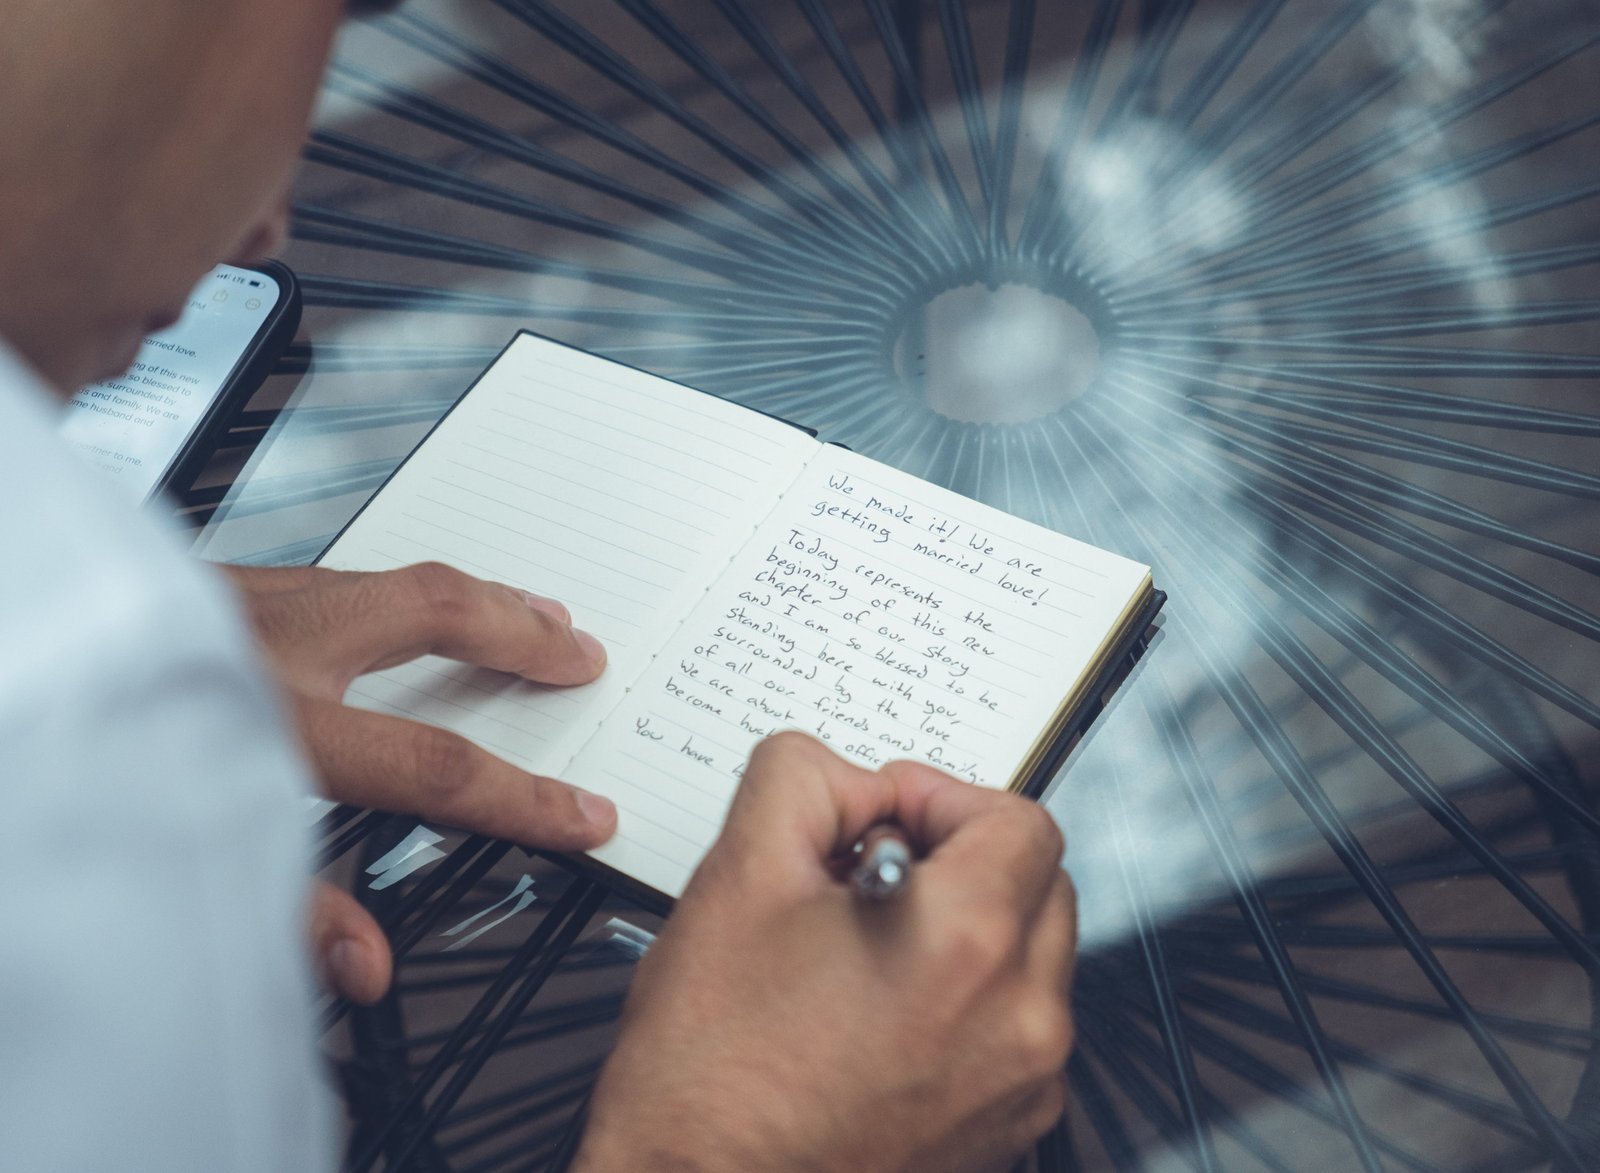 We made it! We are
getting married love!
Today represents the
beginning of this new
chapter of our story
and I am so blessed to be
standing here with you,
surrounded by the love
of all our friends and family.
We are about to
become
You have
LTE
PM
married love.
of this new
so blessed to
surrounded by
and family. We are
husband and
partner to me.
and